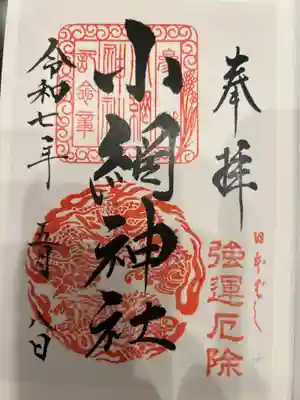 奉拝
日本ばし
強運厄除
小網神社
令和七年
五月八日